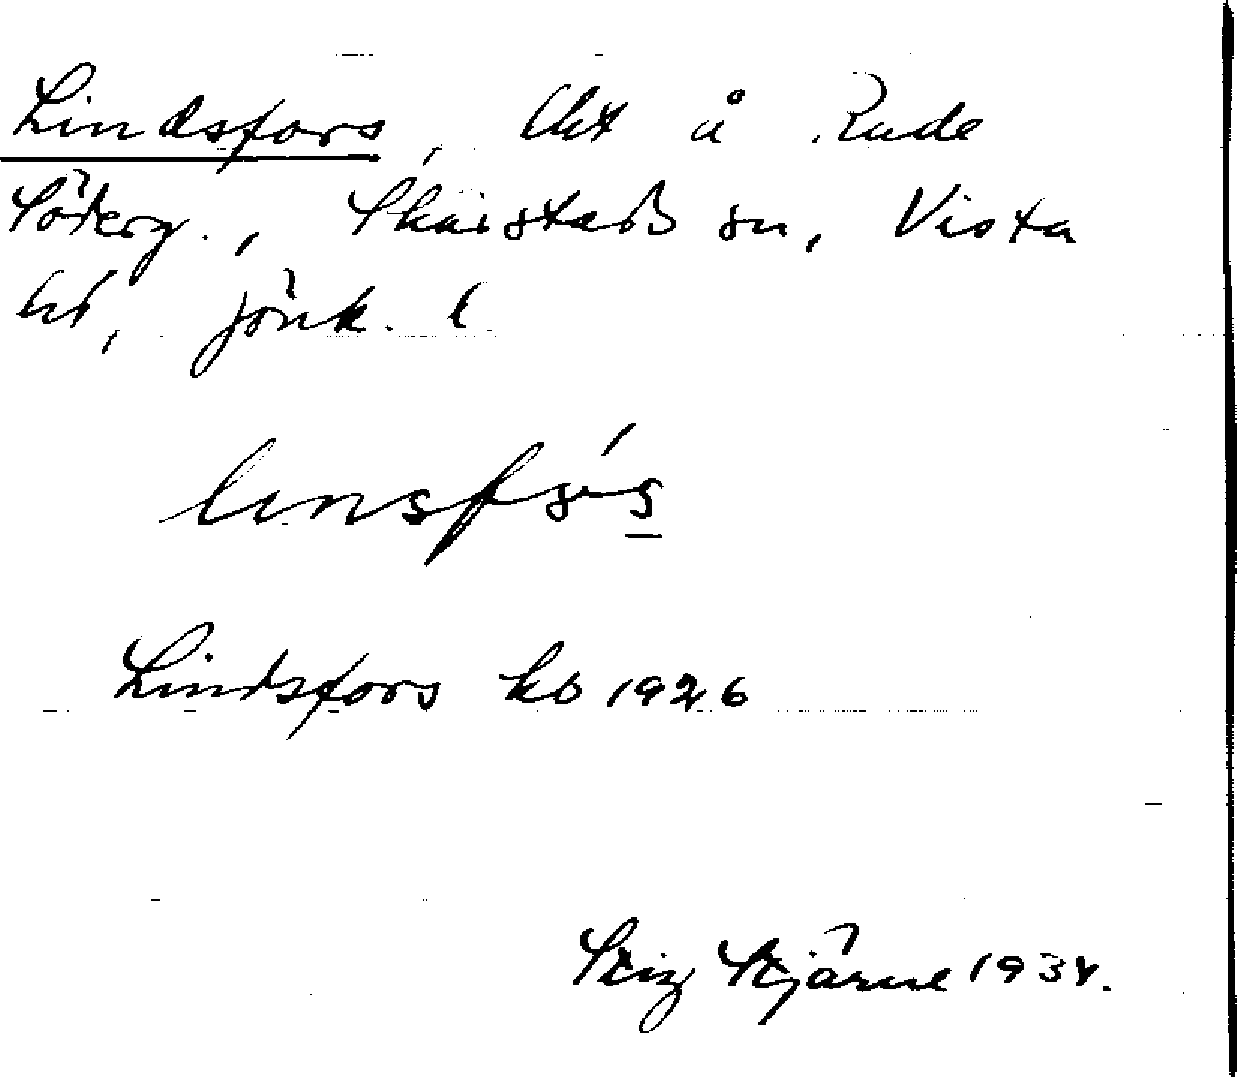 Lindsfors, lht å Rude
Söderg., Skärstads sn, Vista
hd, Jönk. l.
linsfòs
Lindsfors kb 1926
Stig Stjärne 1934.